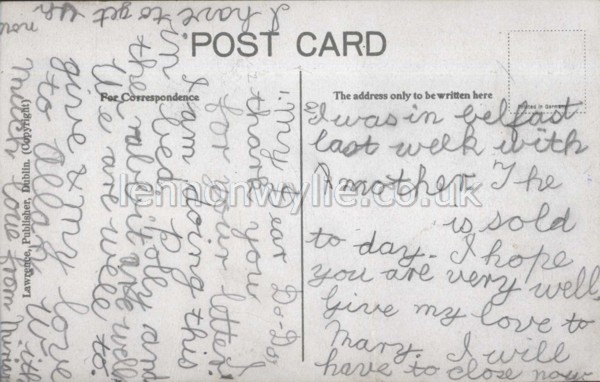 POST CARD
For Correspondence
The address only to be written here
Printed in Germany
Lawrence, Publisher, Dublin. (Copyright)
1. My dear Do-Do,
thank you
for your letter
I am doing this
in bed. Polly and
the rabbit are well
We are well to.
give my love
to Allag With
much love from
I have to get up
now
2) I was in belfast
last week with
Amother. The
is sold
to day. I hope
you are very well.
Give my love to
Mary. I will
have to close now
lennonwylie.co.uk